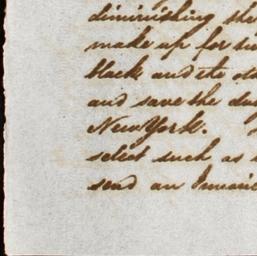 diminishing the
make up for
black and the
and save the
New York.
select such as
send an